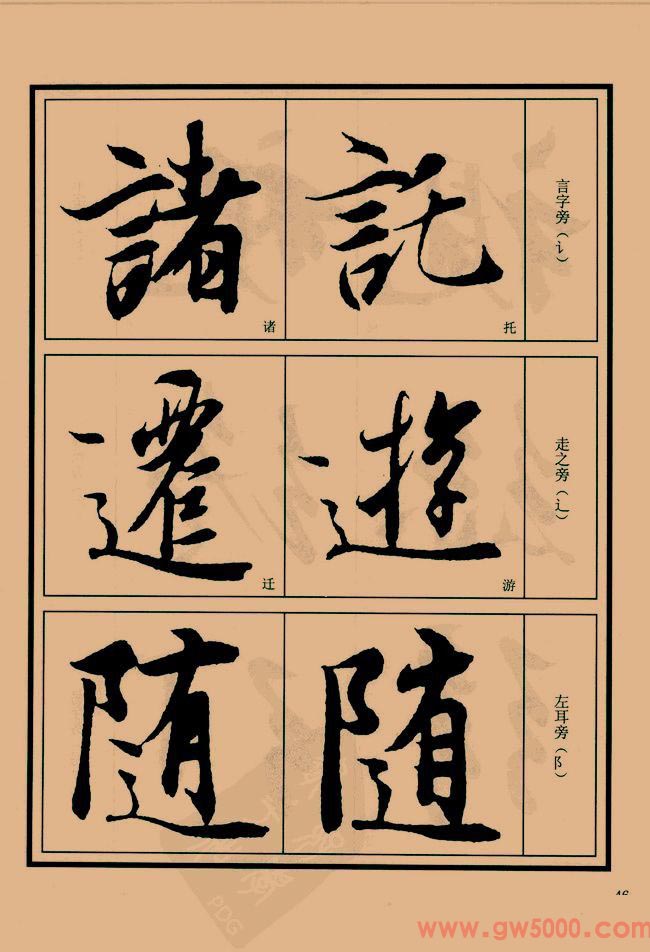 言字旁（讠）
託
托
諸
诸
走之旁（辶）
遊
游
遷
迁
左耳旁（阝）
随
随
46
www.gw5000.com
PDG